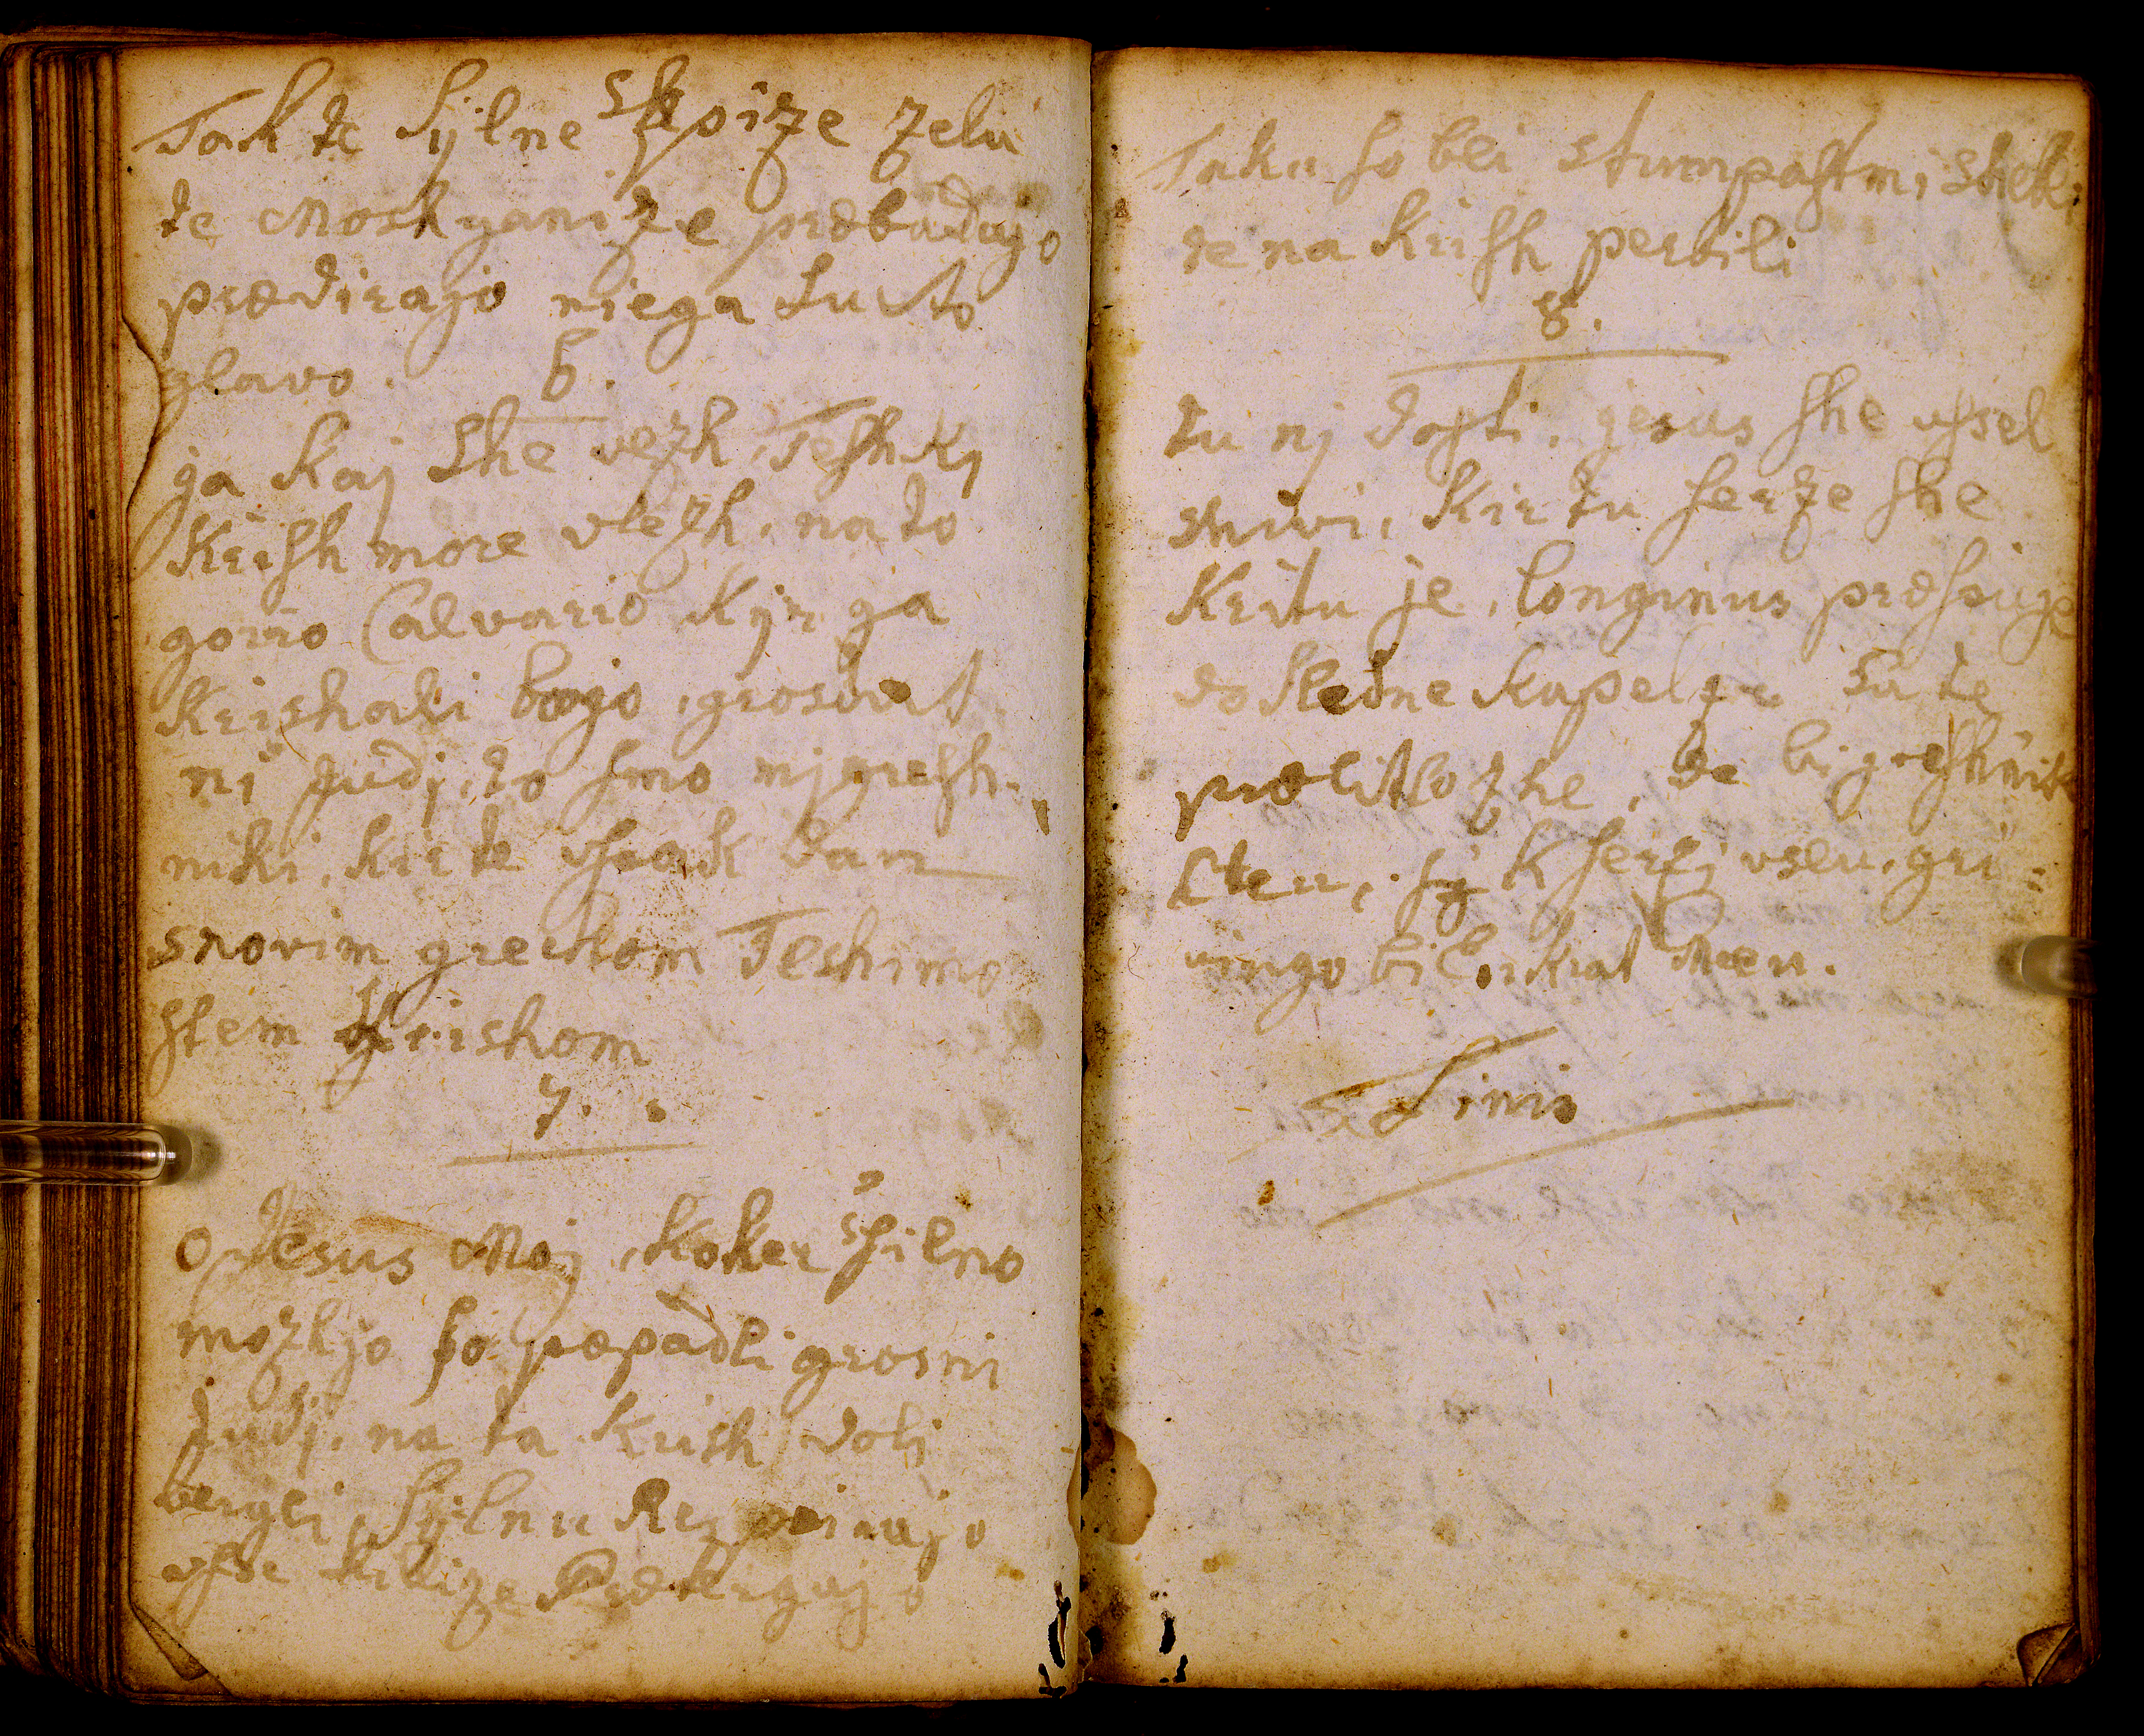 Tak te sÿlne skoize zelu
te Moskganize præbadajo
prædirajo niega suto
glavo. 6.
ga kaj she vezh, Teshkj
Krish more vlezh, na to
gorro Calvario kÿr ga
krishali bojo, grosvit
ni Judj, to smo mj gresh-
niki, kir te vsak dan
snovim grehom Teshimo
stem Krishom
7.
O Jesus Moj, koker silno
mozhjo so popadli grosni
Judj, na ta krish doli
vergli, sÿlnu Res pinajo
vse shilize Predtergajo
Taku so bli stumpastmi shebli
te na krish perbili
8.
tu nj dosti, jesus she vssel
shivi, kir tu serze she
kritu je, longinus præsuje
do sledne kapelze sa te
prælit hozhe, de bi greshnik
lteu, sÿ k serzj vseu, gri=
vingo bil, nkrat Meu.
Finis